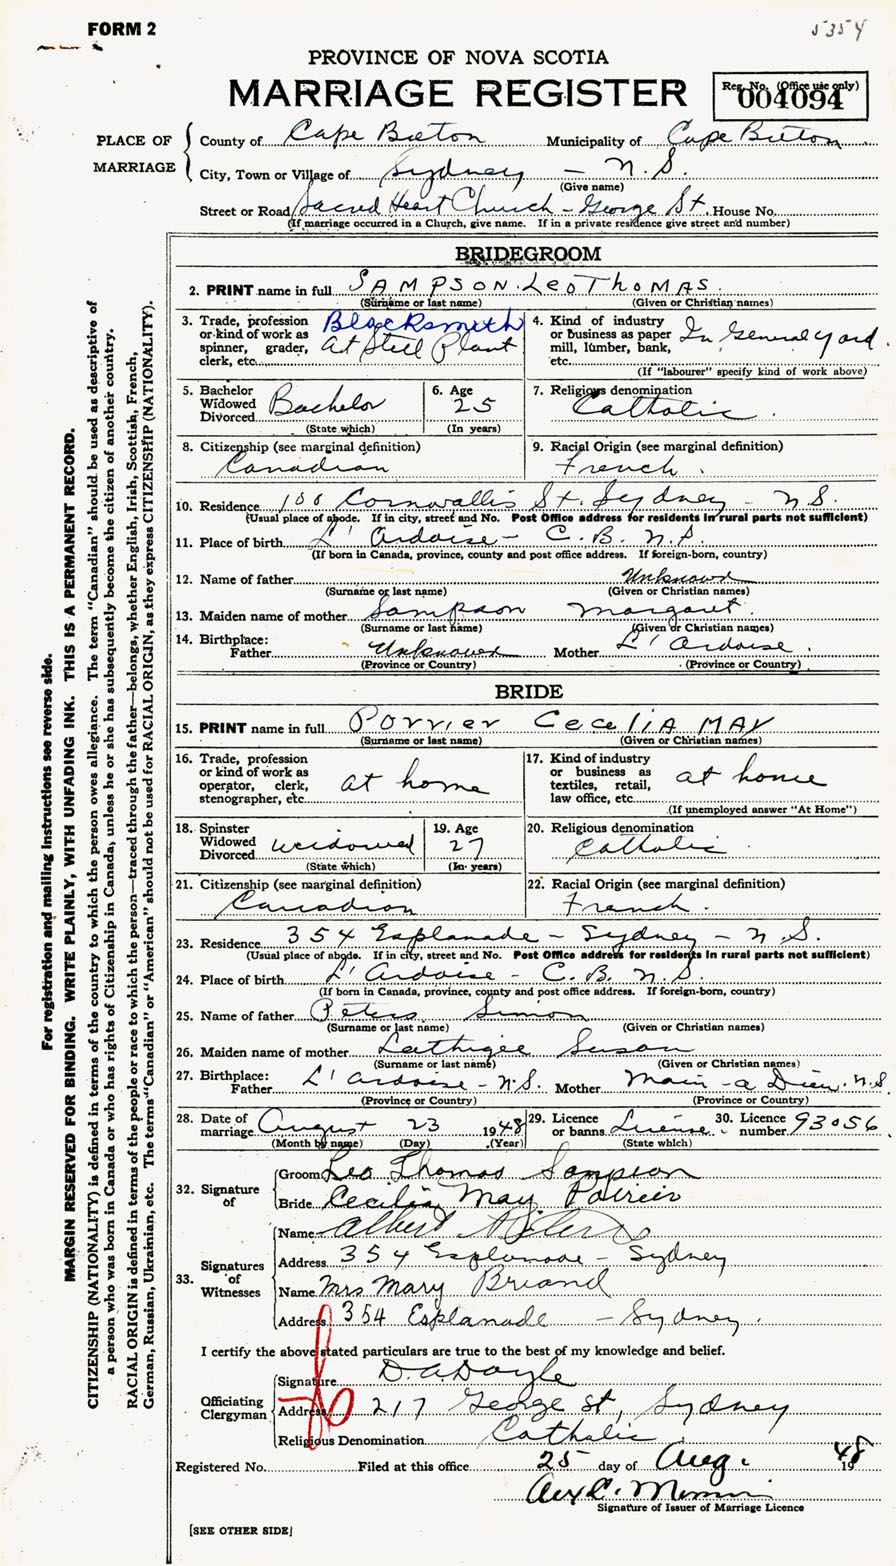 FORM 2
5354
PROVINCE OF NOVA SCOTIA
MARRIAGE REGISTER
Reg. No. (Office use only)
004094
PLACE OF MARRIAGE
County of Cape Breton Municipality of Cape Breton
City, Town or Village of Sydney - N.S.
(Give name)
Street or Road Sacred Heart Church - George St. House No.
(If marriage occurred in a Church, give name. If in a private residence give street and number)
BRIDEGROOM
2. PRINT name in full SAMPSON. LEO THOMAS.
(Surname or last name) (Given or Christian names)
3. Trade, profession or kind of work as spinner, grader, clerk, etc. Blacksmith At Steel Plant
4. Kind of industry or business as paper mill, lumber, bank, etc. In General yard.
(If "labourer" specify kind of work above)
5. Bachelor Widowed Divorced Bachelor
(State which)
6. Age 25
(In years)
7. Religious denomination Catholic.
8. Citizenship (see marginal definition) Canadian
9. Racial Origin (see marginal definition) French.
10. Residence 188 Cornwallis St. Sydney - N.S.
(Usual place of abode. If in city, street and No. Post Office address for residents in rural parts not sufficient)
11. Place of birth L'Ardoise - C.B. N.S.
(If born in Canada, province, county and post office address. If foreign-born, country)
12. Name of father Unknown
(Surname or last name) (Given or Christian names)
13. Maiden name of mother Sampson Margaret.
(Surname or last name) (Given or Christian names)
14. Birthplace:
Father Unknown Mother L'Ardoise.
(Province or Country) (Province or Country)
BRIDE
15. PRINT name in full Porrier Cecelia MAY
(Surname or last name) (Given or Christian names)
16. Trade, profession or kind of work as operator, clerk, stenographer, etc. at home
17. Kind of industry or business as textiles, retail, law office, etc. at home
(If unemployed answer "At Home")
18. Spinster Widowed Divorced widowed
(State which)
19. Age 27
(In years)
20. Religious denomination Catholic.
21. Citizenship (see marginal definition) Canadian
22. Racial Origin (see marginal definition) French.
23. Residence 354 Esplanade - Sydney - N.S.
(Usual place of abode. If in city, street and No. Post Office address for residents in rural parts not sufficient)
24. Place of birth L'Ardoise - C.B. N.S.
(If born in Canada, province, county and post office address. If foreign-born, country)
25. Name of father Peters Simon
(Surname or last name) (Given or Christian names)
26. Maiden name of mother Susan
(Surname or last name) (Given or Christian names)
27. Birthplace:
Father L'Ardoise - N.S. Mother Main-a-Dieu. N.S.
(Province or Country) (Province or Country)
28. Date of marriage August 23 1948
(Month by name) (Day) (Year)
29. Licence or banns License.
(State which)
30. Licence number 93056.
32. Signature of
Groom Leo Thomas Sampson
Bride Cecilia May Poirier
33. Signatures of Witnesses
Name Albert Peters
Address 354 Esplanade - Sydney
Name Mrs Mary Briand
Address 354 Esplanade - Sydney.
I certify the above stated particulars are true to the best of my knowledge and belief.
Officiating Clergyman
Signature D.A. Doyle
Address 217 George St, Sydney
Religious Denomination Catholic
Registered No. Filed at this office 25 day of Aug. 1948
Signature of Issuer of Marriage Licence
[SEE OTHER SIDE]
For registration and mailing instructions see reverse side.
MARGIN RESERVED FOR BINDING. WRITE PLAINLY, WITH UNFADING INK. THIS IS A PERMANENT RECORD.
CITIZENSHIP (NATIONALITY) is defined in terms of the country to which the person owes allegiance. The term "Canadian" should be used as descriptive of
a person who was born in Canada or who has rights of Citizenship in Canada, unless he or she has subsequently become the citizen of another country.
RACIAL ORIGIN is defined in terms of the people or race to which the person—traced through the father—belongs, whether English, Irish, Scottish, French,
German, Russian, Ukrainian, etc. The terms "Canadian" or "American" should not be used for RACIAL ORIGIN, as they express CITIZENSHIP (NATIONALITY).